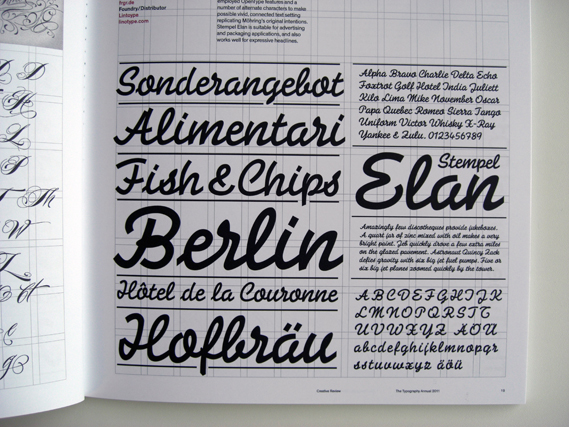 frgr.de
Foundry/Distributor
Linotype
linotype.com
employed OpenType features and a
number of alternate characters to make
possible vivid, connected text setting
replicating Möhring's original intentions.
Stempel Elan is suitable for advertising
and packaging applications, and also
works well for expressive headlines.
Sonderangebot
Alimentari
Fish & Chips
Berlin
Hôtel de la Couronne
Hofbräu
Alpha Bravo Charlie Delta Echo
Foxtrot Golf Hotel India Juliett
Kilo Lima Mike November Oscar
Papa Quebec Romeo Sierra Tango
Uniform Victor Whisky X-Ray
Yankee & Zulu. 0123456789
Stempel
Elan
Amazingly few discotheques provide jukeboxes.
A quart jar of zinc mixed with oil makes a very
bright paint. Job quickly drove a few extra miles
on the glazed pavement. Astronaut Quincy Zack
defies gravity with six big jet fuel pumps. Five or
six big jet planes zoomed quickly by the tower.
ABCDEFGHIJK
LMNOPQRST
UVWXYZ ÄÖÜ
abcdefghijklmnopqr
sstuvwxyz äöü
Creative Review
The Typography Annual 2011